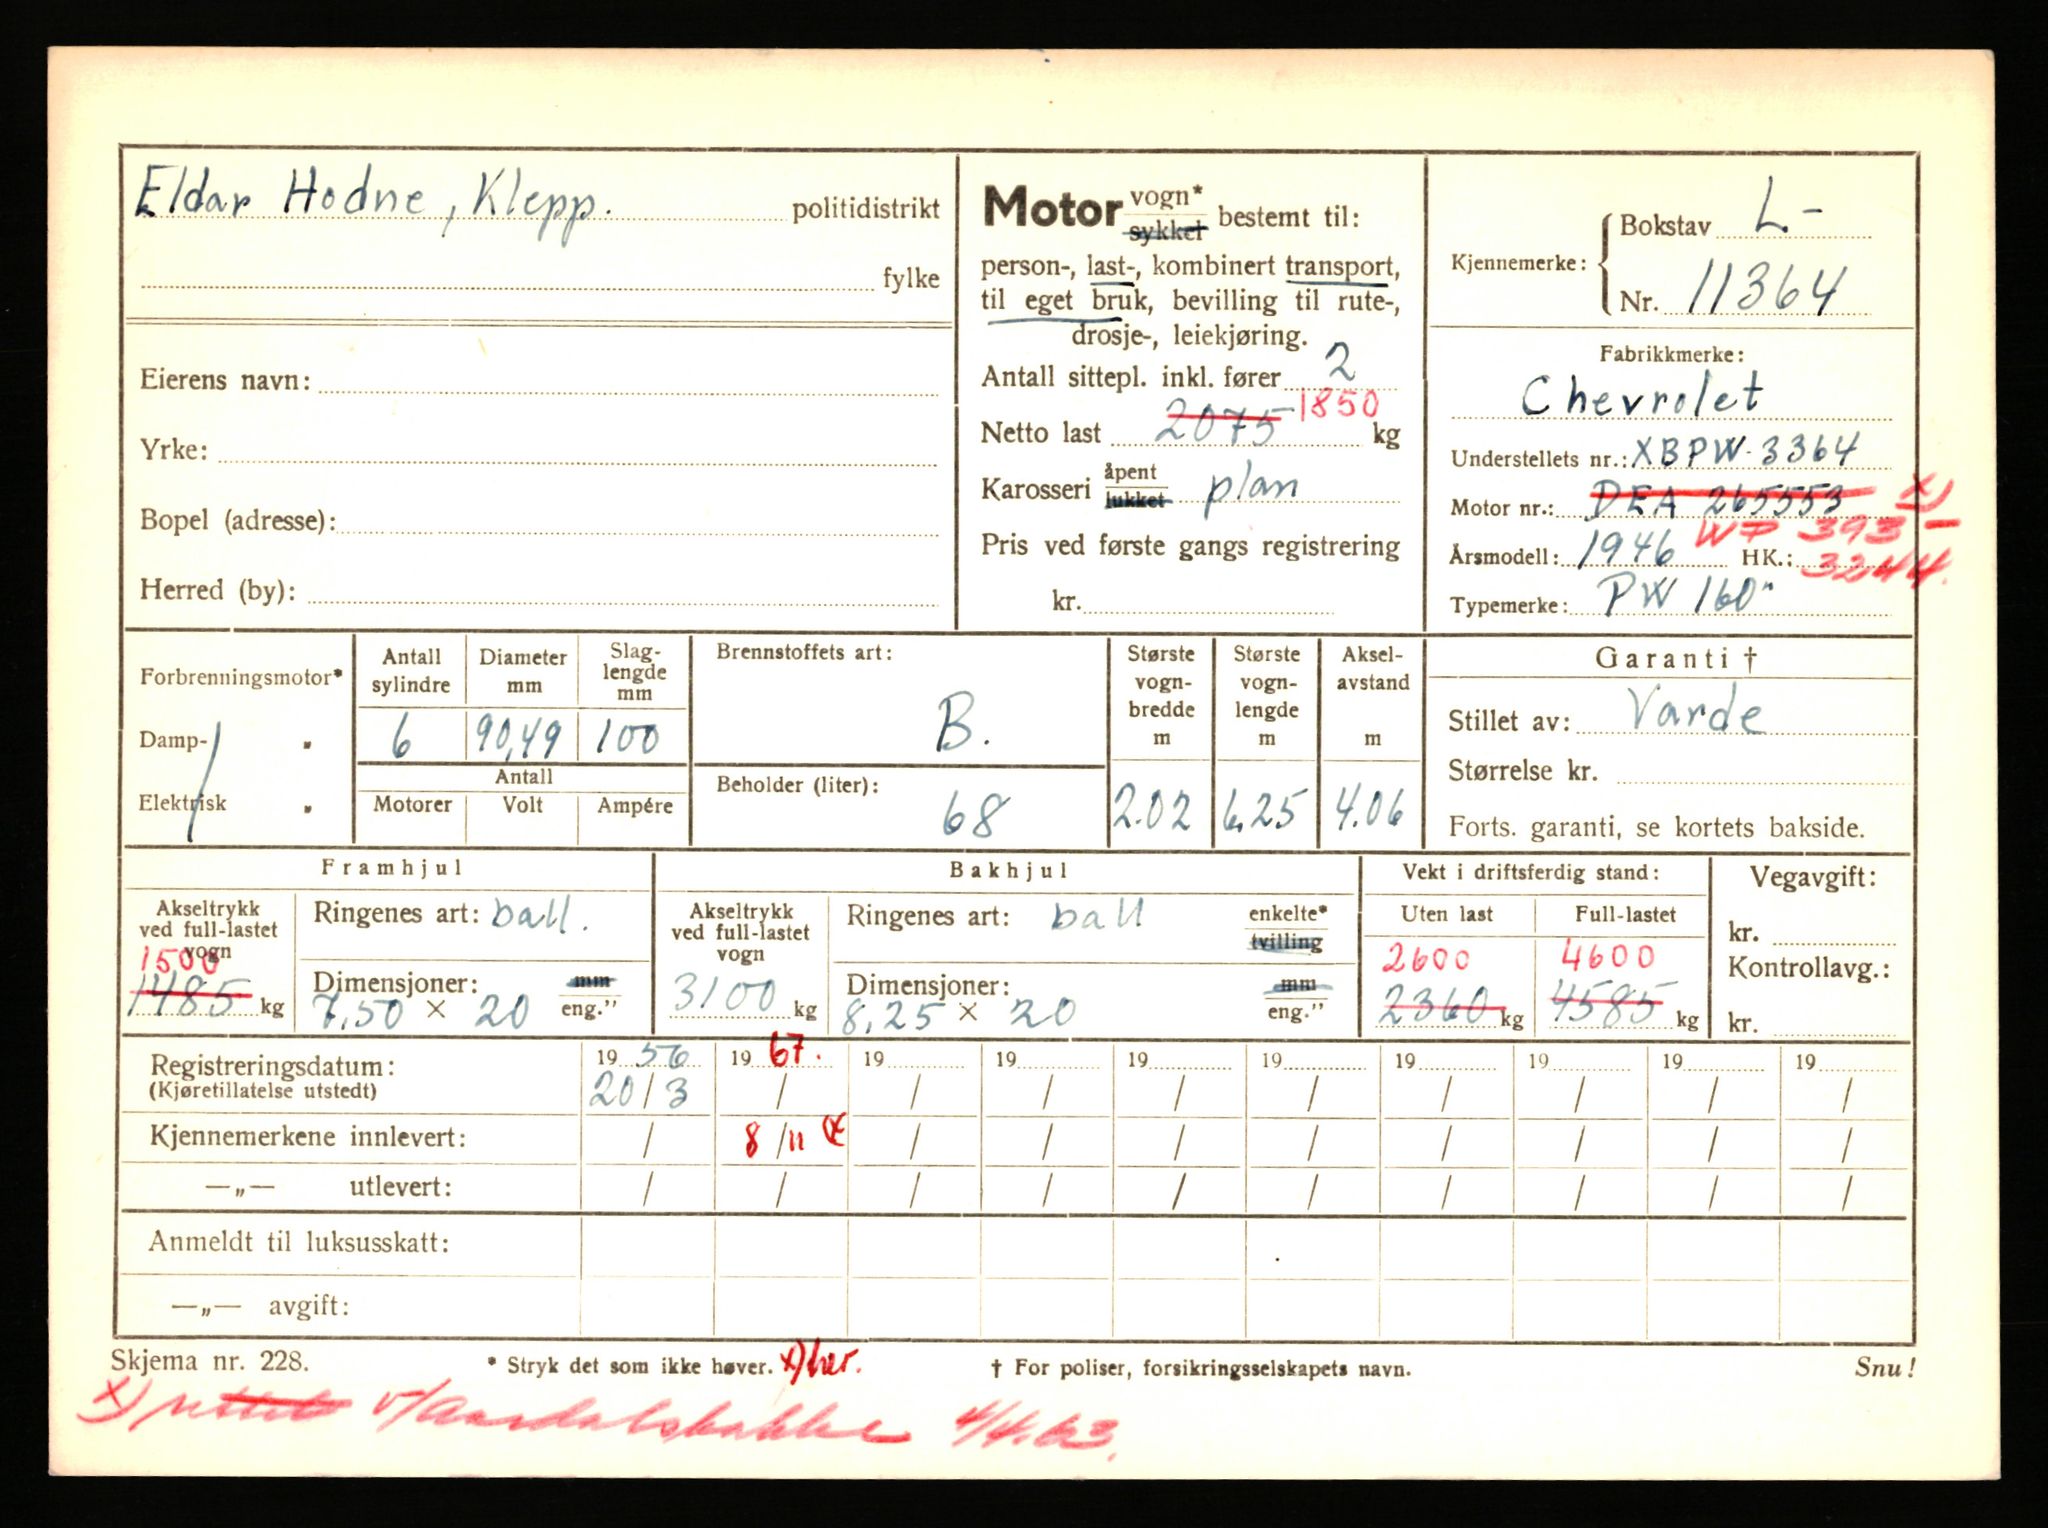 Eldar Hodne, Klepp. politidistrikt
fylke
Eierens navn:
Yrke:
Bopel (adresse):
Herred (by):
Motor vogn* sykkel bestemt til:
person-, last-, kombinert transport,
til eget bruk, bevilling til rute-,
drosje-, leiekjøring.
Antall sittepl. inkl. fører 2
Netto last 2075 1850 kg
Karosseri åpent lukket plan
Pris ved første gangs registrering
kr.
Kjennemerke: Bokstav L-
Nr. 11364
Fabrikkmerke:
Chevrolet
Understellets nr.: XBPW-3364
Motor nr.: DEA 265553 x)
WP 393-
Årsmodell: 1946 HK.: 3244.
Typemerke: PW 160"
Forbrenningsmotor*
Damp- "
Elektrisk "
Antall sylindre Diameter mm Slaglengde mm
6 90,49 100
Antall
Motorer Volt Ampére
Brennstoffets art:
B.
Beholder (liter):
68
Største vognbredde m Største vognlengde m Akselavstand m
2.02 6.25 4.06
Garanti †
Stillet av: Varde
Størrelse kr.
Forts. garanti, se kortets bakside.
Framhjul
Akseltrykk ved full-lastet vogn
1500
1485 kg
Ringenes art: ball.
Dimensjoner: mm
7,50 × 20 eng."
Bakhjul
Akseltrykk ved full-lastet vogn
3100 kg
Ringenes art: ball enkelte* tvilling
Dimensjoner: mm
8,25 × 20 eng."
Vekt i driftsferdig stand:
Uten last Full-lastet
2600 4600
2360 kg 4585 kg
Vegavgift:
kr.
Kontrollavg.:
kr.
Registreringsdatum: 19 56 19 67. 19 19 19 19 19 19 19 19
(Kjøretillatelse utstedt) 20/3 / / / / / / / / /
Kjennemerkene innlevert: / 8/11 x / / / / / / / /
—„— utlevert: / / / / / / / / / /
Anmeldt til luksusskatt:
—„— avgift:
Skjema nr. 228. * Stryk det som ikke høver. x) her. † For poliser, forsikringsselskapets navn. Snu!
x) rettet v/Aardalsbakke 4/4.63.